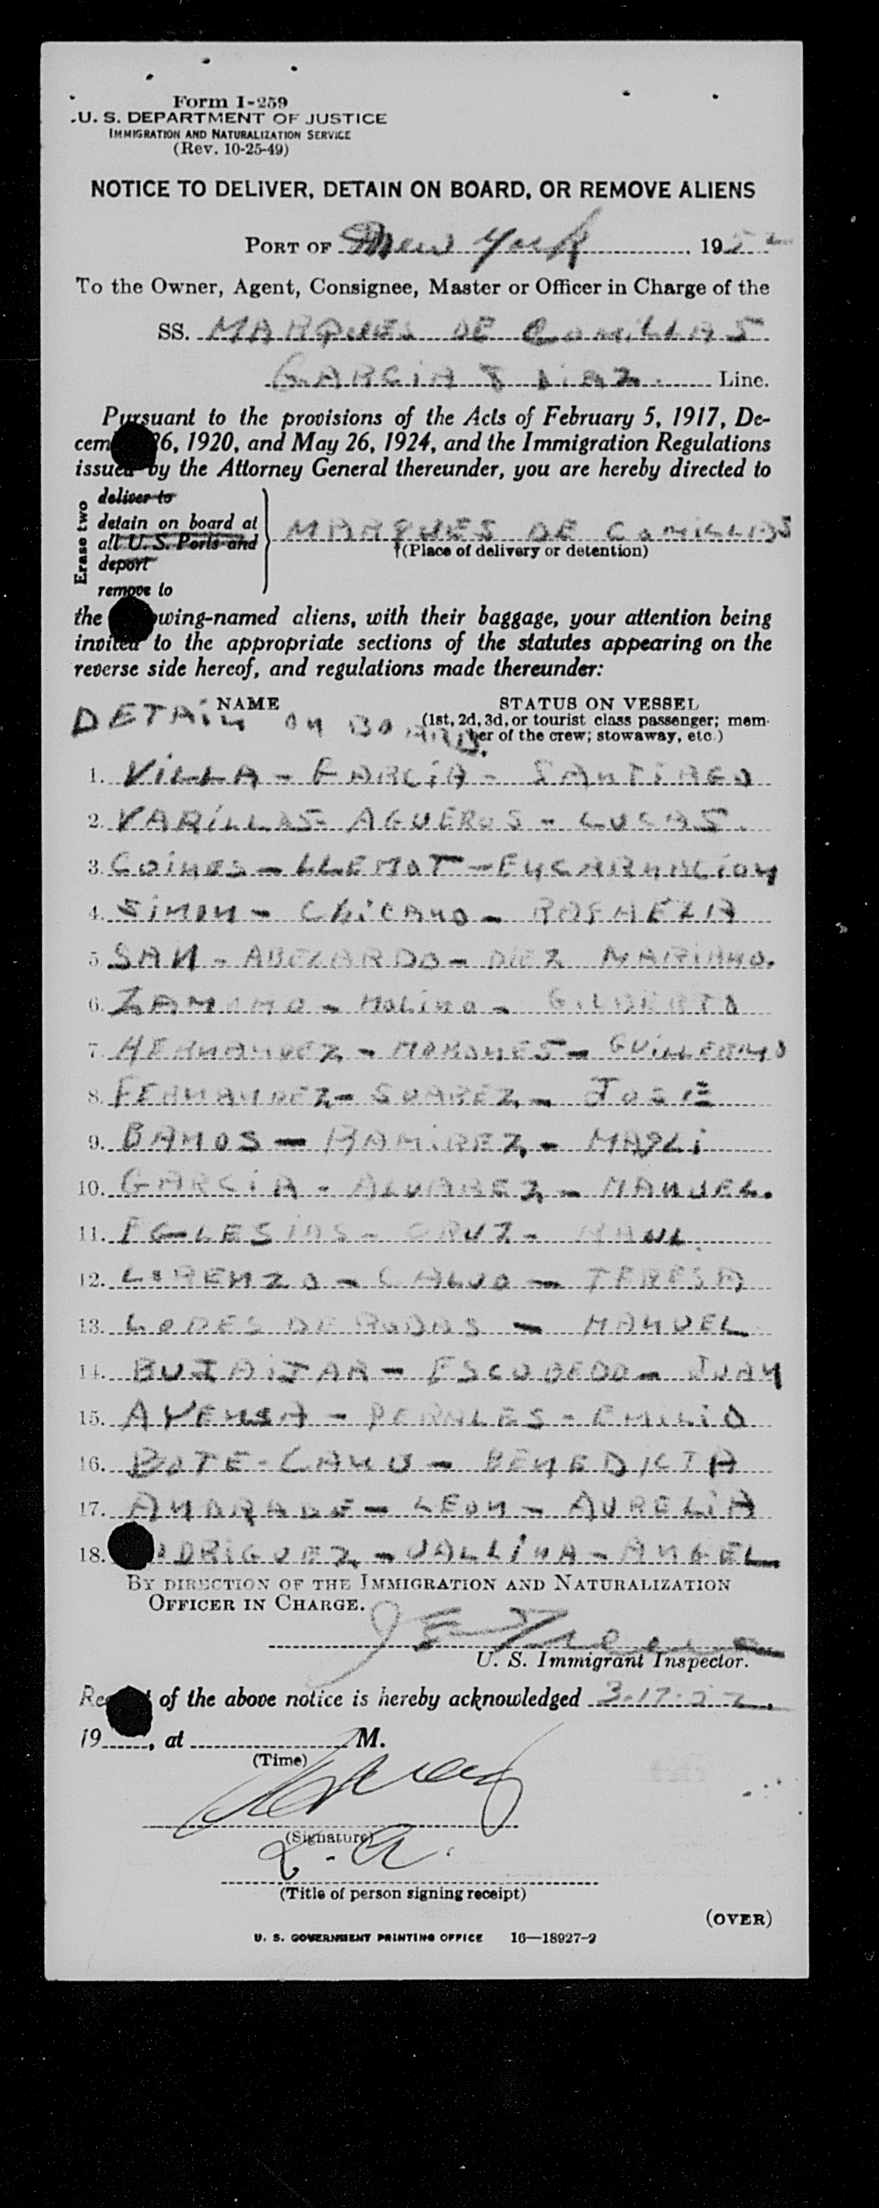 Form I-259
U. S. DEPARTMENT OF JUSTICE
IMMIGRATION AND NATURALIZATION SERVICE
(Rev. 10-25-49)
NOTICE TO DELIVER, DETAIN ON BOARD, OR REMOVE ALIENS
PORT OF New York, 1952
To the Owner, Agent, Consignee, Master or Officer in Charge of the
SS. MARQUES DE COMILLAS
GARCIA & DIAZ. Line.
Pursuant to the provisions of the Acts of February 5, 1917, De-
cem 26, 1920, and May 26, 1924, and the Immigration Regulations
issued by the Attorney General thereunder, you are hereby directed to
Erase two
deliver to
detain on board at
all U. S. Ports and
deport
remove to
MARQUES DE COMILLAS
†(Place of delivery or detention)
the wing-named aliens, with their baggage, your attention being
invited to the appropriate sections of the statutes appearing on the
reverse side hereof, and regulations made thereunder:
NAME STATUS ON VESSEL
(1st, 2d, 3d, or tourist class passenger; mem-
ber of the crew; stowaway, etc.)
DETAIN ON BOARD.
1. VILLA - GARCIA - SANTIAGO
2. VARILLAS - AGUEROS - LUCAS.
3. - LLEMOT - ENCARNACION
4. SIMON - CHICANO - RAFAELA
5. SAN - ABELARDO - DIEZ MARIANO.
6. ZAMORO - MOLINO - GILBERTO
7. HERNANDEZ - - GUILLERMO
8. FERNANDEZ - SUAREZ - JOSE
9. BANOS - RAMIREZ -
10. GARCIA - ALVAREZ - MANUEL.
11. IGLESIAS - CRUZ -
12. LORENZO - CALVO - TERESA
13. DE RODAS - MANUEL
14. BUJAIJAR - ESCOBEDO - JUAN
15. - PERALES - EMILIO
16. BOTE - CANO - BENEDICTA
17. ANDRADE - LEON - AURELIA
18. ODRIGUEZ - VALLINA - ANGEL
BY DIRECTION OF THE IMMIGRATION AND NATURALIZATION
OFFICER IN CHARGE.
U. S. Immigrant Inspector.
Re of the above notice is hereby acknowledged 3-17-52,
19, at M.
(Time)
(Signature)
(Title of person signing receipt)
(OVER)
U. S. GOVERNMENT PRINTING OFFICE 16—18927-2